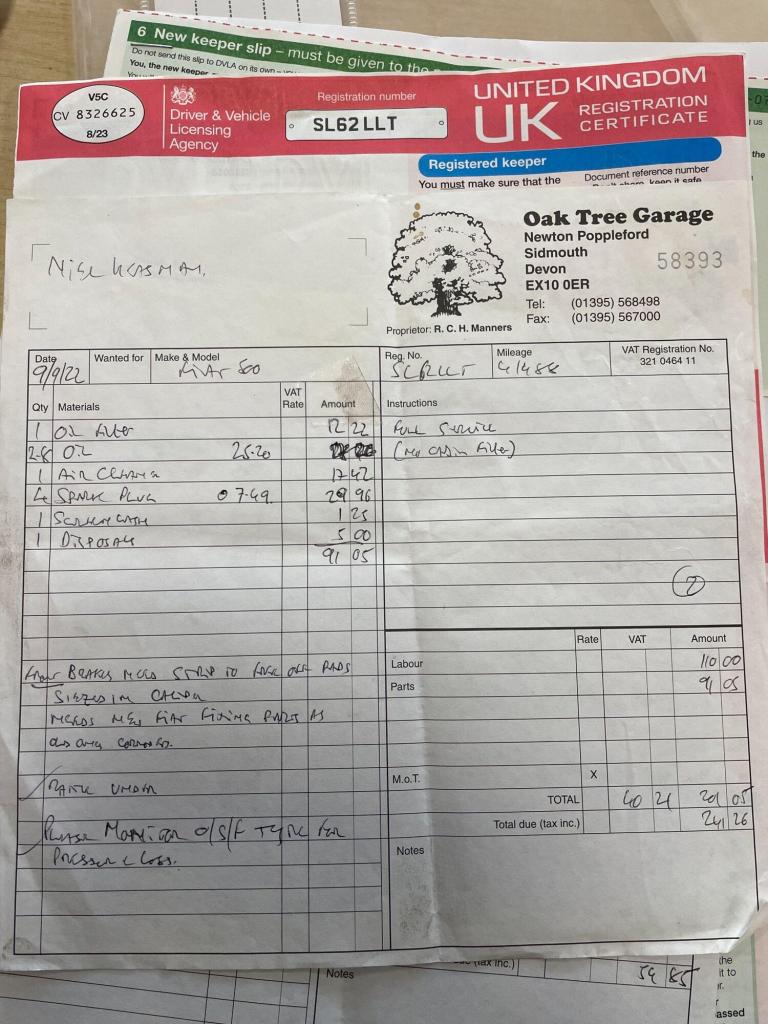 6 New keeper slip – must be given to the
Do not send this slip to DVLA on its own –
You, the new keeper
V5C
CV 8326625
8/23
Driver & Vehicle
Licensing
Agency
Registration number
SL62 LLT
UNITED KINGDOM
UK REGISTRATION
CERTIFICATE
us
the
Registered keeper
You must make sure that the
Document reference number
Oak Tree Garage
Newton Poppleford
Sidmouth
Devon
EX10 0ER
58393
Tel: (01395) 568498
Fax: (01395) 567000
Proprietor: R. C. H. Manners
Date 9/9/22
Wanted for
Make & Model Fiat 500
Reg. No.
Mileage 41488
VAT Registration No.
321 0464 11
Qty Materials VAT Rate Amount Instructions
1 Oil Filter 12 22 Full Service
2.8 Oil 25.20 (no cabin filter)
1 Air Cleaner 17 42
4 Spark Plug 7.49 29 96
1 Screenwash 1 25
1 Disposal 5 00
91 05
Rate VAT Amount
Labour 110 00
Parts 91 05
M.o.T. X
TOTAL 40 21 201 05
Total due (tax inc.) 241 26
Notes
Front Brakes need strip to free off pads
Siezed in Caliper
needs new Fiat fixing parts as
old ones corroded.
Please Monitor O/S/F Tyre for
Pressure Loss.
(tax inc.)
Notes
54 85
the
it to
assed